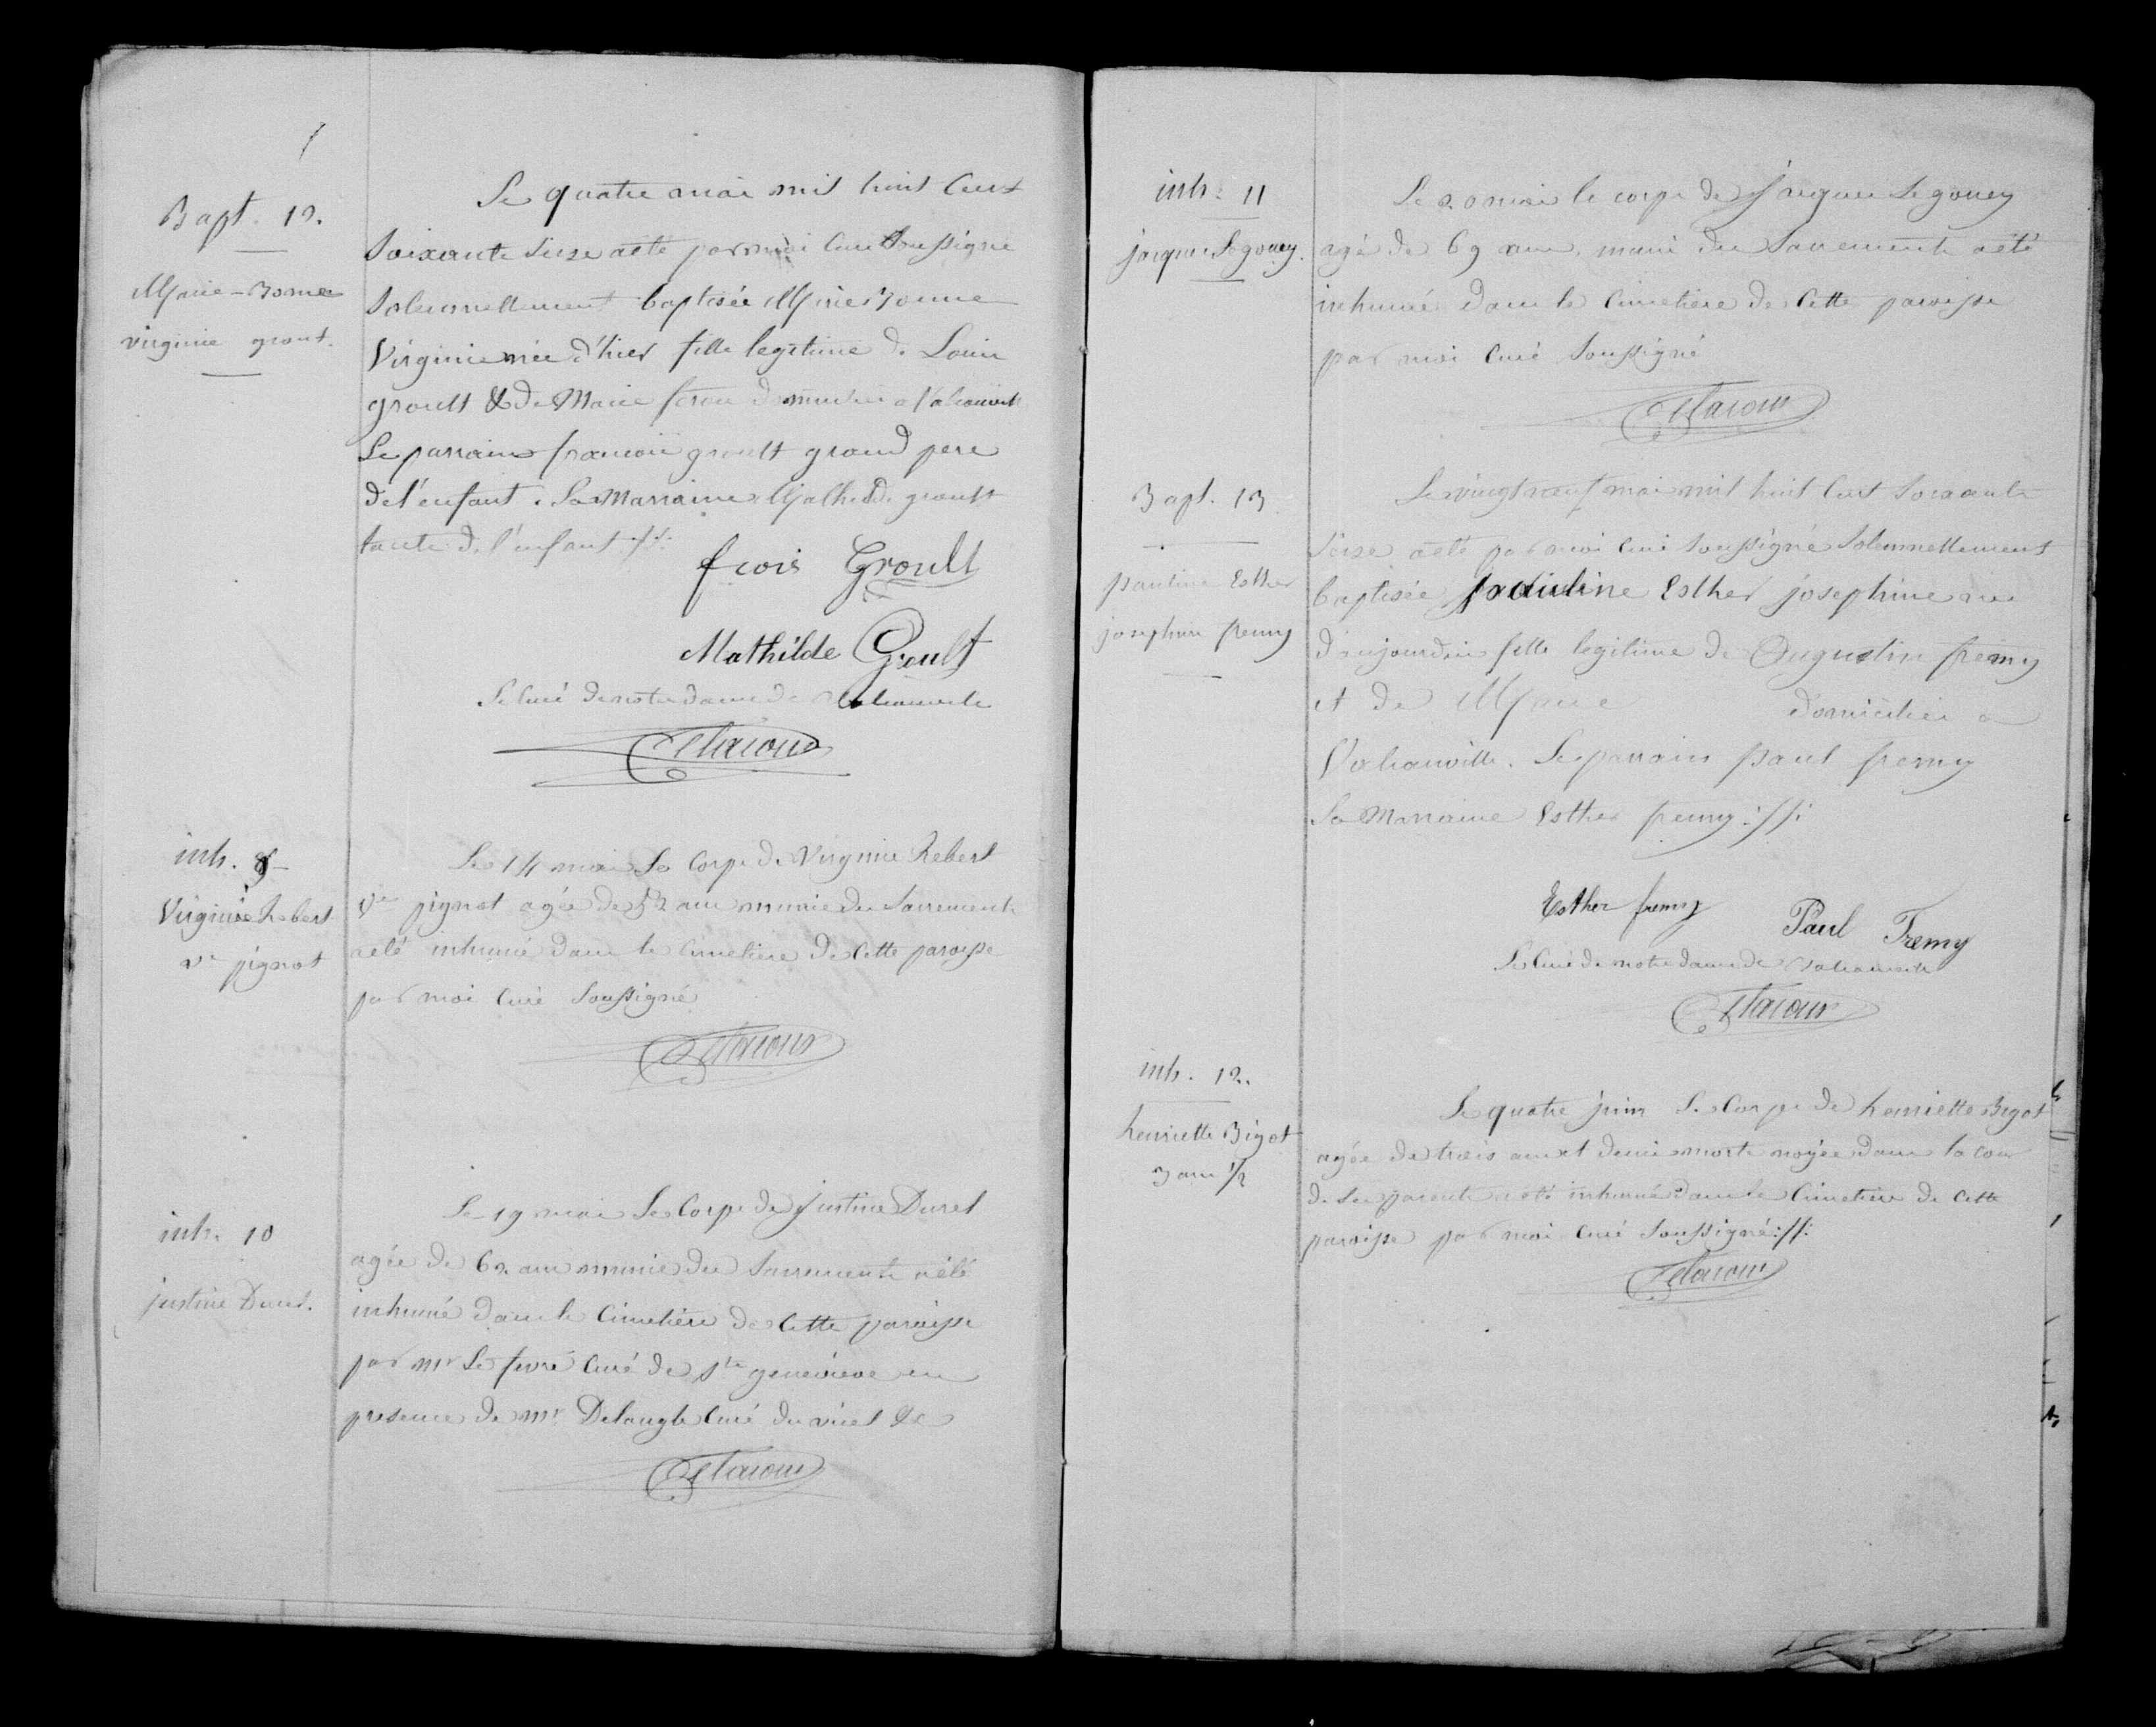 Bapt. 12.
Marie-Bonne
virginie grout.
Le quatre mai mil huit Cent
Soixante Seize a été par moi Curé Soussigné
Solemnellement baptisée Marie Bonne
Virginie née d'hier fille legitime de Louis
groult & de Marie feron domiciliés a Valcanville
Le parrain francois groult grand pere
de l'enfant. La Marraine Mathilde groult
tante de l'enfant
fcois Groult
Mathilde Groult
Le Curé de notre dame de Valcanville
inh. 9
Virginie Rebert
ve pignot
Le 14 mai Le Corps de Virginie Rebert
Ve pignot agée de 52 ans munie des Sacrements
a été inhumé dans le Cimetiere de Cette paroisse
par moi Curé Soussigné
inh. 10
justine Duret.
Le 19 mai Le Corps de justine Duret
agée de 62 ans munie des Sacrements a été
inhumé dans le Cimetière de Cette paroisse
par mr Le fevre Curé de Ste genevieve en
presence de mr Delangle Curé du vicel &c
inh. 11
jacques Le gouey.
Le 20 mai le corps de Jacques Le gouey
agé de 69 ans, muni des Sacrements a été
inhumé dans le Cimetière de Cette paroisse
par moi Curé Soussigné
Bapt. 13
pauline Esther
josephine fremy
Le vingt neuf mai mil huit Cent Soixante
Seize a été par moi Curé Soussigné Solemnellement
baptisée pauline Esther josephine née
d'aujourd'hui fille legitime de Augustin fremy
et de Marie domiciliés a
Valcanville. Le parrain paul fremy
La Marraine Esther fremy
Esther fremy
Paul Fremy
Le Curé de notre dame de Valcanville
inh. 12.
henriette Bigot
3 ans 1/2
Le quatre juin Le Corps de henriette Bigot
agée de trois ans et demi morte noyée dans la cour
de Ses parents a été inhumé dans le Cimetière de Cette
paroisse par moi Curé Soussigné